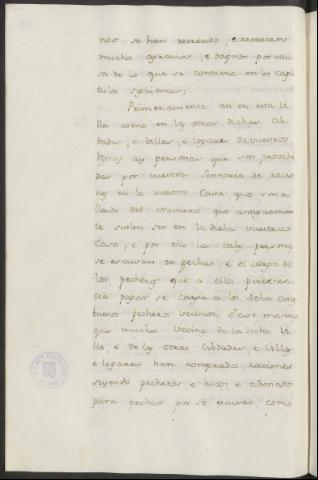 nos se han recrecido, e recrecen
mucho agravios, e dapnos por cau
sa de lo que se contiene en los capi
tulos siguientes;
Primeramente asi en esta Vi
lla como en las otras dichas Cib
dades, e Villas, e logares de vuestros
Regnos ay personas que son provehi
das por vuestra Sennoria de racio
nes en la vuestra Casa que son a
llende del numero que antiguamen
te suelen ser en la dicha vuestra
Casa, e por ello las tales personas
se escusan de pechar, e el cargo de
los pecheros que a ellos pertenes
cia pagar se carga a los dichos ome
buenos pecheros vecinos. e eso mesmo
que muchos vecinos de la dicha Vi
lla, e de las otras Cibdades e Villas
e logares han comprado raciones
seyendo pecheros, e ricos e abonados
para pechar por se escusar, como